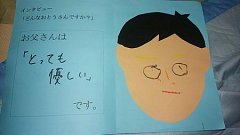 インタビュー
「どんなおとうさんですか?」
お父さんは
「とっても
優しい」
です。